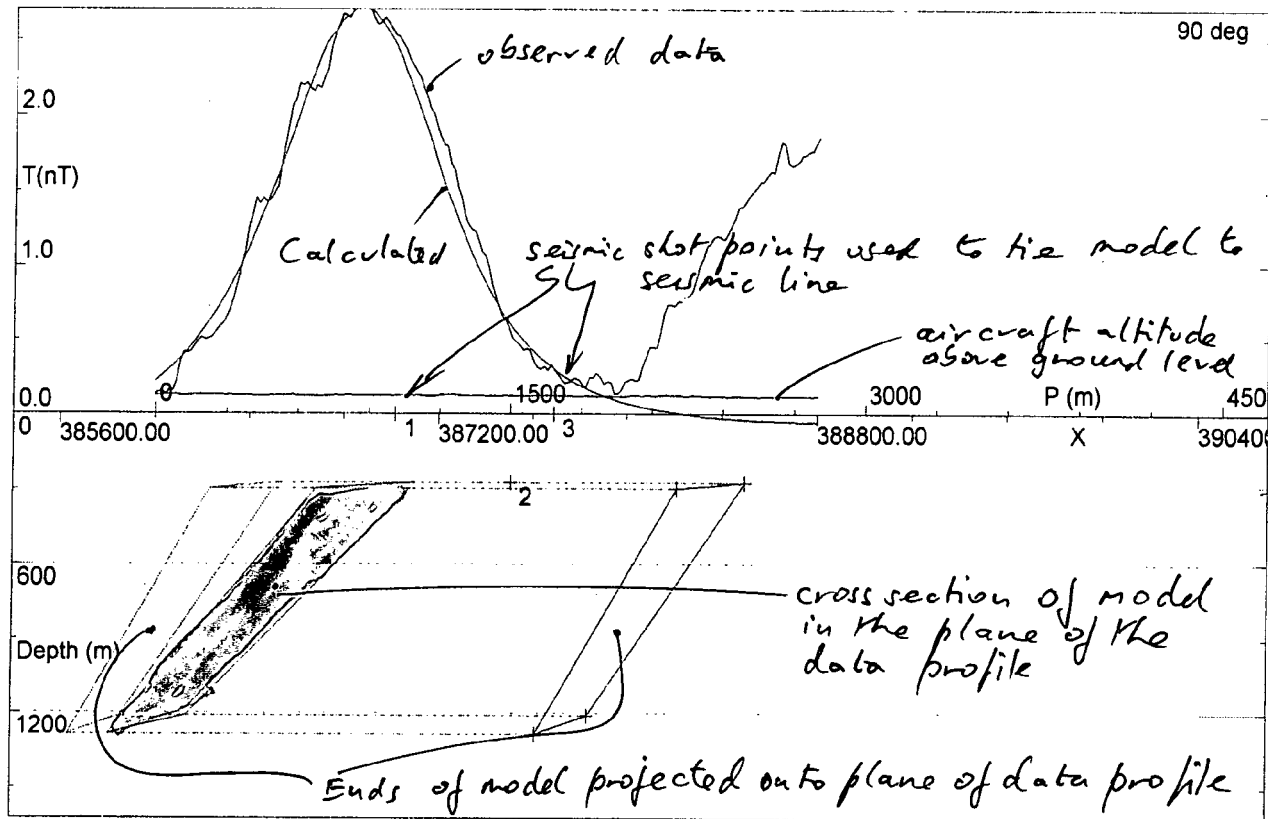 90 deg
observed data
2.0
T(nT)
Calculated
seismic shot points used to tie model to
seismic line
1.0
aircraft altitude
above ground level
0.0
0
1500
3000
P (m)
450
0
385600.00
1
387200.00
3
388800.00
X
390400
2
600
cross section of model
in the plane of the
data profile
Depth (m)
1200
Ends of model projected onto plane of data profile